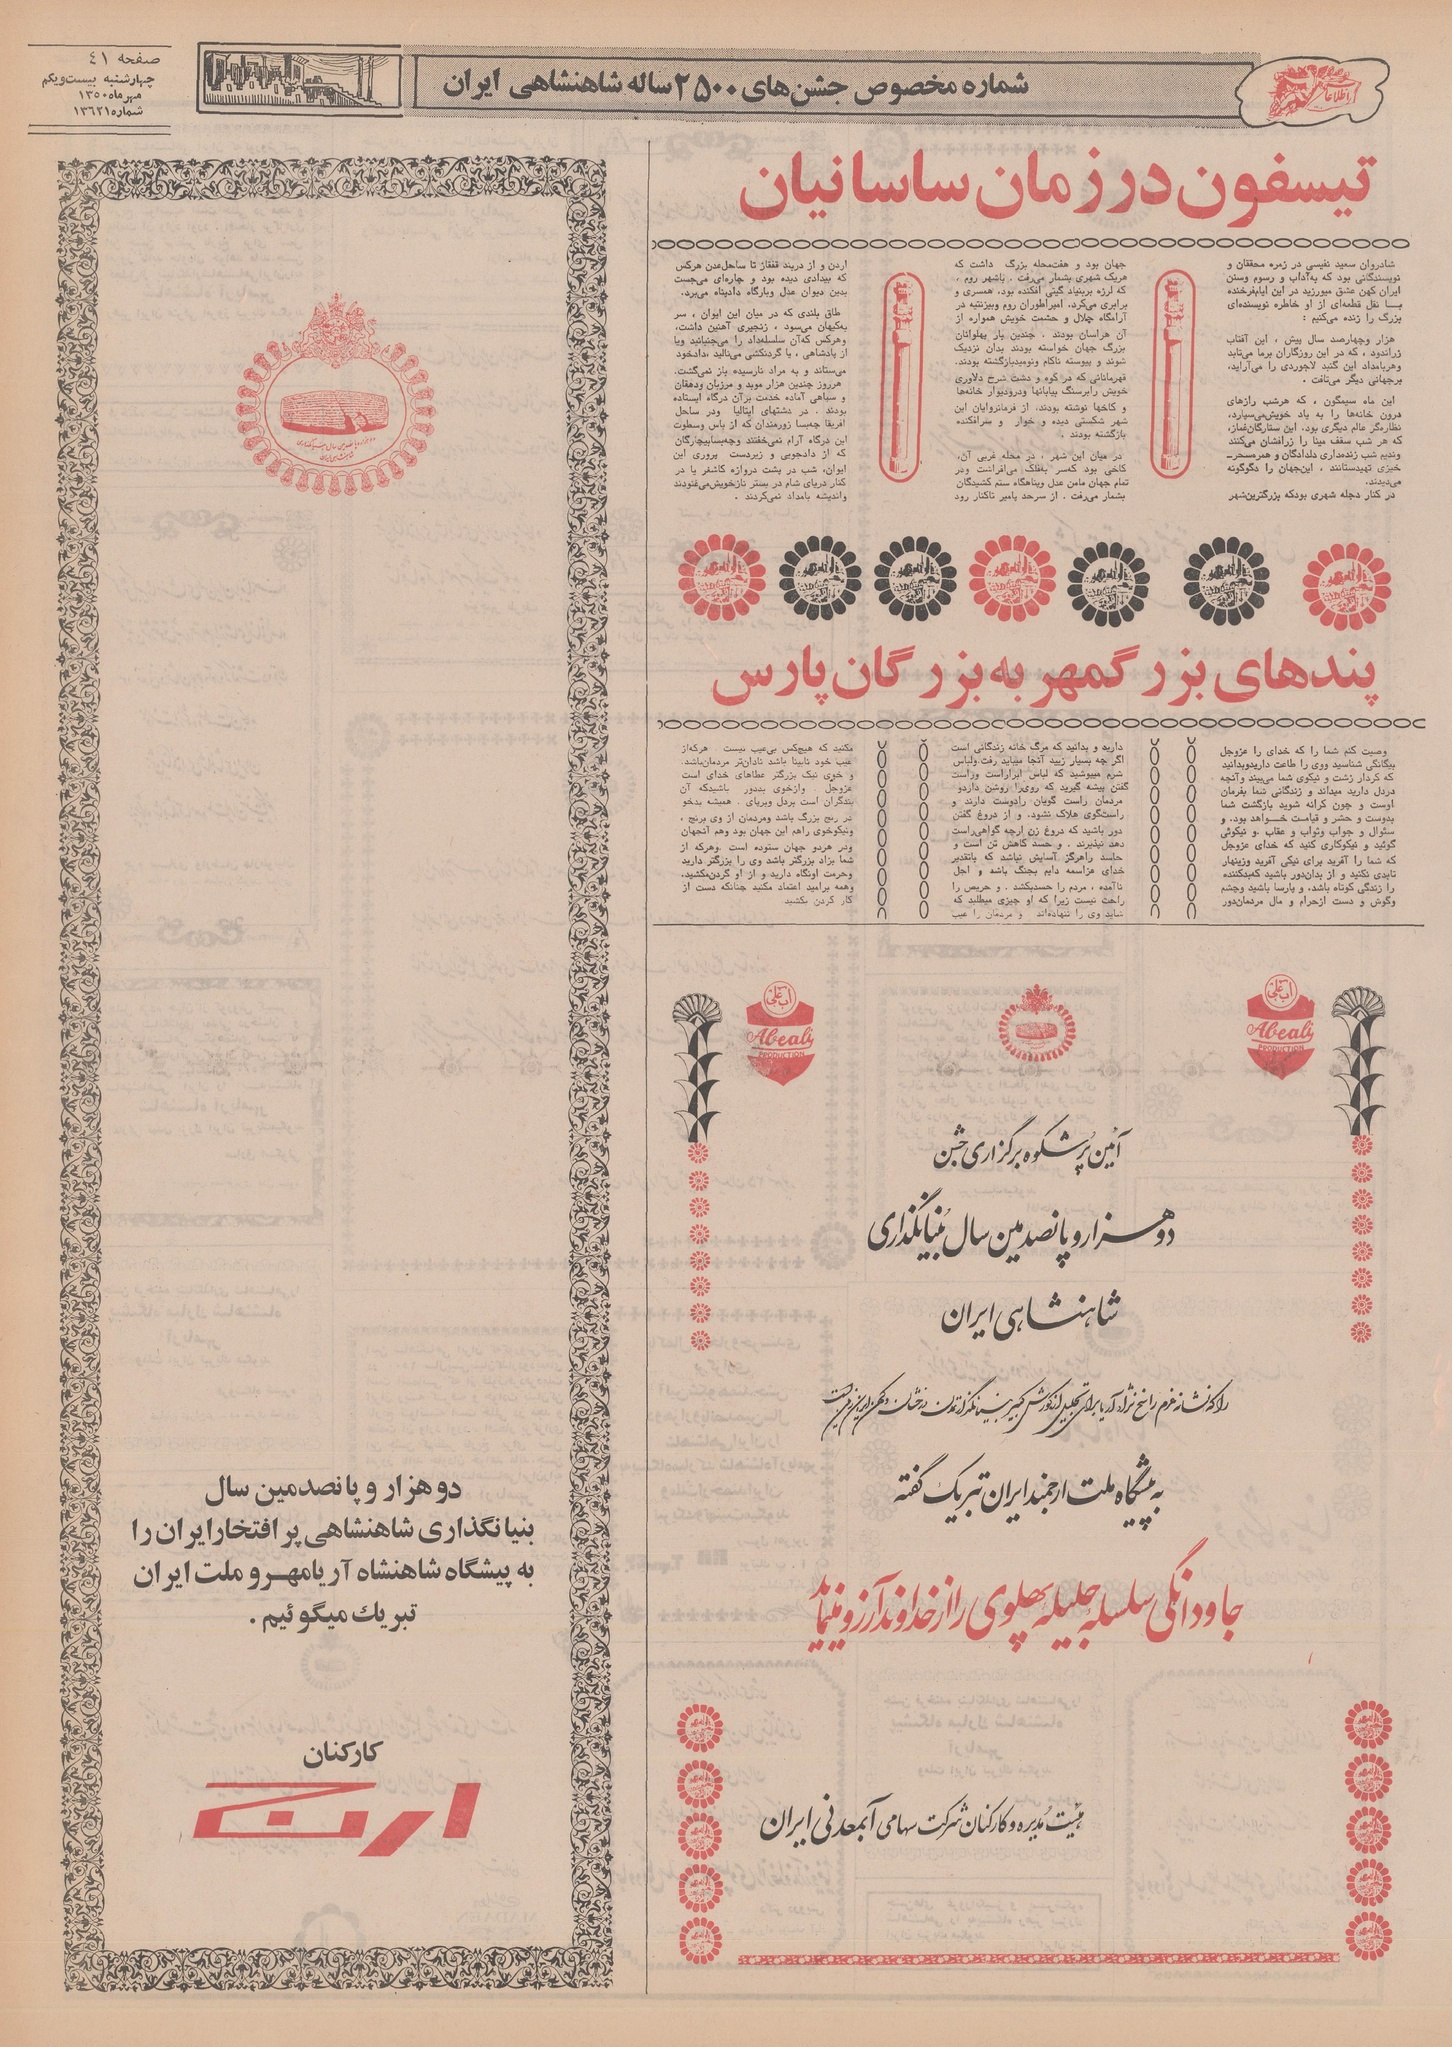 صفحه ٤١
چهارشنبه بیست‌ویکم
مهرماه ۱۳۵۰
شماره ۱۳۶۲۱
شماره مخصوص جشن‌های ۲۵۰۰ ساله شاهنشاهی ایران
اطلاعات
تیسفون در زمان ساسانیان
شادروان سعید نفیسی در زمره محققان و
نویسندگانی بود که به‌آداب و رسوم وسنن
ایران کهن عشق میورزید در این ایام‌فرخنده
بــا نقل قطعه‌ای از او خاطره نویسنده‌ای
بزرگ را زنده می‌کنیم :
هزار وچهارصد سال پیش ، این آفتاب
زراندود ، که در این روزگاران برما می‌تابد
وهربامداد این گنبد لاجوردی را می‌آراید،
برجهانی دیگر می‌تافت .
این ماه سیمگون ، که هرشب رازهای
درون خانه‌ها را به یاد خویش‌می‌سپارد،
نظاره‌گر عالم دیگری بود. این ستارگان‌غماز،
که هر شب سقف مینا را زرافشان می‌کنند
وندیم شب زنده‌داری دلدادگان و همرهسحر-
خیزی تهیدستانند ، این‌جهان را دگوگونه
می‌دیدند.
در کنار دجله شهری بودکه بزرگترین‌شهر
جهان بود و هفت‌محله بزرگ داشت که
هریک شهری بشمار می‌رفت . باشهر روم ،
که لرزه بربنیاد گیتی افکنده بود، همسری و
برابری می‌کرد. امپراطوران روم وبیزنتیه در
آرامگاه جلال و حشمت خویش همواره از
آن هراسان بودند . چندین بار پهلوانان
بزرگ جهان خواسته بودند بدان نزدیک
شوند و پیوسته ناکام ونومیدبازگشته بودند.
قهرمانانی که در کوه و دشت شرح دلاوری
خویش رابرسنگ بیابانها ودرودیوار خانه‌ها
و کاخها نوشته بودند، از فرمانروایان این
شهر شکستی دیده و خوار و سرافکنده
بازگشته بودند .
در میان این شهر ، در محله غربی آن،
کاخی بود که‌سر به‌فلک می‌افراشت ودر
تمام جهان مامن عدل وپناهگاه ستم کشیدگان
بشمار می‌رفت . از سرحد پامیر تاکنار رود
اردن و از دربند قفقاز تا ساحل‌عدن هرکس
که بیدادی دیده بود و چاره‌ای می‌جست
بدین دیوان عدل وبارگاه دادپناه می‌برد.
طاق بلندی که در میان این ایوان ، سر
به‌کیهان می‌سود ، زنجیری آهنین داشت،
وهرکس که‌آن سلسله‌داد را می‌جنبانید ویا
از پادشاهی ، یا گردنکشی می‌نالید ،دادخود
می‌ستاند و به مراد نارسیده باز نمی‌گشت.
هرروز چندین هزار موبد و مرزبان ودهقان
و سپاهی آماده خدمت برآن درگاه ایستاده
بودند . در دشتهای ایتالیا ودر ساحل
افریقا چه‌بسا زورمندان که از پاس وسطوت
این درگاه آرام نمی‌خفتند وچه‌بسابیچارگان
که از دادجویی و زبردست پروری این
ایوان، شب در پشت دروازه کاشغر یا در
کنار دریای شام در بستر نازخویش‌می‌غنودند
واندیشه بامداد نمی‌کردند .
پندهای بزرگمهر به بزرگان پارس
وصیت کنم شما را که خدای را عزوجل
بیگانگی شناسید ووی را طاعت داریدوبدانید
که کردار زشت و نیکوی شما می‌بیند وآنچه
دردل دارید میداند و زندگانی شما بفرمان
اوست و چون کرانه شوید بازگشت شما
بدوست و حشر و قیامت خــواهد بود، و
سئوال و جواب وثواب و عقاب .و نیکوئی
گوئید و نیکوکاری کنید که خدای عزوجل
که شما را آفرید برای نیکی آفرید وزینهار
تابدی نکنید و از بدان‌دور باشید که‌بدکننده
را زندگی کوتاه باشد، و پارسا باشید وچشم
وگوش و دست ازحرام و مال مردمان‌دور
دارید و بدانید که مرگ خانه زندگانی است
اگر چه بسیار زیید آنجا میباید رفت.ولباس
شرم میپوشید که لباس ابراراست وراست
گفتن پیشه گیرید که روی‌را روشن داردو
مردمان راست گویان رادوست دارند و
راستگوی هلاک نشود. و از دروغ گفتن
دور باشید که دروغ زن ارچه گواهی‌راست
دهد نپذیرند . و حسد کاهش تن است و
حاسد راهرگز آسایش نباشد که باتقدیر
خدای عزاسمه دایم بجنگ باشد و اجل
ناآمده ، مردم را حسدبکشد . و حریص را
راحت نیست زیرا که او چیزی میطلبد که
شاید وی را ننهاده‌اند و مردمان را عیب
مکنید که هیچکس بی‌عیب نیست . هرکه‌از
عیب خود نابینا باشد نادان‌تر مردمان‌باشد.
و خوی نیک بزرگتر عطاهای خدای است
عزوجل . وازخوی بددور باشیدکه آن
بندگران است بردل وبرپای . همیشه بدخو
در رنج بزرگ باشد ومردمان از وی برنج ،
ونیکوخوی راهم این جهان بود وهم آنجهان
ودر هردو جهان ستوده است .وهرکه از
شما بزاد بزرگتر باشد وی را بزرگتر دارید
وحرمت اونگاه دارید و از او گردن‌مکشید،
وهمه برامید اعتماد مکنید چنانکه دست از
کار کردن بکشید
آب علی
Abeali
PRODUCTION
آب علی
Abeali
PRODUCTION
آئین پرشکوه برگزاری جشن
دوهزار و پانصدمین سال بنیانگذاری
شاهنشاهی ایران
را که نشانه عزم راسخ نژاد آریا برای تجلیل از کورش کبیر بنیانگذار تمدن درخشان و کهن ایران زمین است
به پیشگاه ملت ارجمند ایران تبریک گفته
جاودانگی سلسله جلیله پهلوی را از خداوند آرزو مینماید
هیئت مدیره و کارکنان شرکت سهامی آبمعدنی ایران
دوهزار و پانصدمین سال بنیانگذاری
شاهنشاهی ایران
دوهزار و پانصدمین سال
بنیانگذاری شاهنشاهی پر افتخار ایران را
به پیشگاه شاهنشاه آریامهر و ملت ایران
تبریك میگوئیم .
کارکنان
ارج